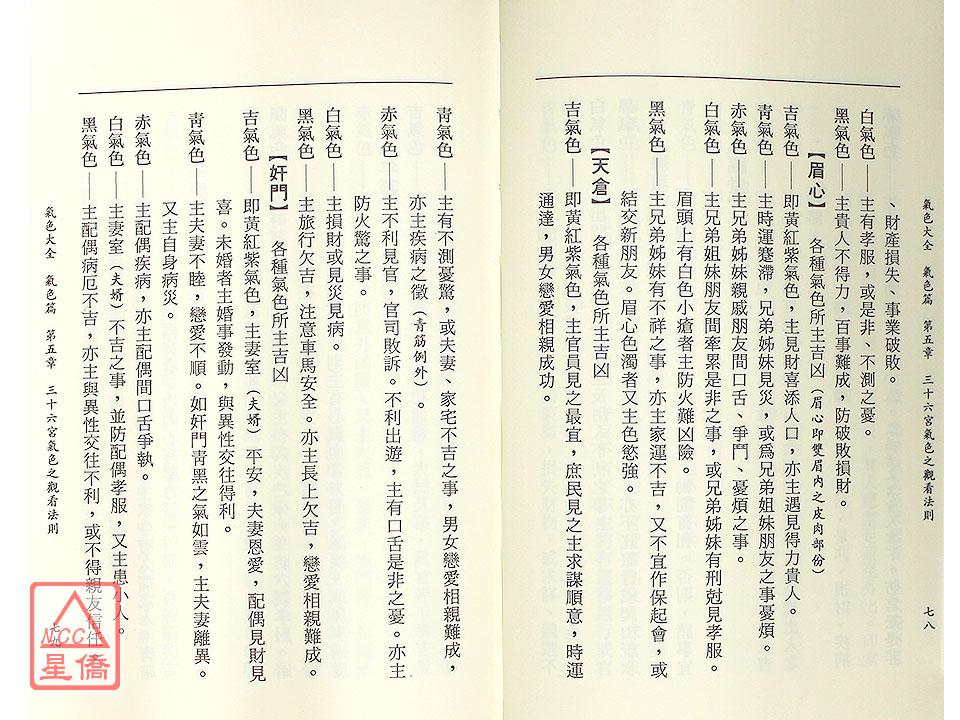 氣色大全　氣色篇　第五章　三十六宮氣色之觀看法則
七八
、財產損失、事業破敗。
白氣色——主有孝服，或是非、不測之憂。
黑氣色——主貴人不得力，百事難成，防破敗損財。
【眉心】　各種氣色所主吉凶（眉心即雙眉內之皮肉部份）
吉氣色——即黃紅紫氣色，主見財喜添人口，亦主遇見得力貴人。
靑氣色——主時運蹇滯，兄弟姊妹見災，或爲兄弟姐妹朋友之事憂煩。
赤氣色——主兄弟姊妹親戚朋友間口舌、爭鬥、憂煩之事。
白氣色——主兄弟姐妹朋友間牽累是非之事，或兄弟姊妹有刑剋見孝服。
眉頭上有白色小瘡者主防火難凶險。
黑氣色——主兄弟姊妹有不祥之事，亦主家運不吉，又不宜作保起會，或
結交新朋友。眉心色濁者又主色慾強。
【天倉】　各種氣色所主吉凶
吉氣色——即黃紅紫氣色，主官員見之最宜，庶民見之主求謀順意，時運
通達，男女戀愛相親成功。
靑氣色——主有不測憂驚，或夫妻、家宅不吉之事，男女戀愛相親難成，
亦主疾病之徵（青筋例外）。
赤氣色——主不利見官，官司敗訴。不利出遊，主有口舌是非之憂。亦主
防火驚之事。
白氣色——主損財或見災見病。
黑氣色——主旅行欠吉，注意車馬安全。亦主長上欠吉，戀愛相親難成。
【奸門】　各種氣色所主吉凶
吉氣色——即黃紅紫氣色，主妻室（夫婿）平安，夫妻恩愛，配偶見財見
喜。未婚者主婚事發動，與異性交往得利。
靑氣色——主夫妻不睦，戀愛不順。如奸門靑黑之氣如雲，主夫妻離異。
又主自身病災。
赤氣色——主配偶疾病，亦主配偶間口舌爭執。
白氣色——主妻室（夫婿）不吉之事，並防配偶孝服，又主患小人。
黑氣色——主配偶病厄不吉，亦主與異性交往不利，或不得親友信任。
氣色大全　氣色篇　第五章　三十六宮氣色之觀看法則
七九
NCC
星僑